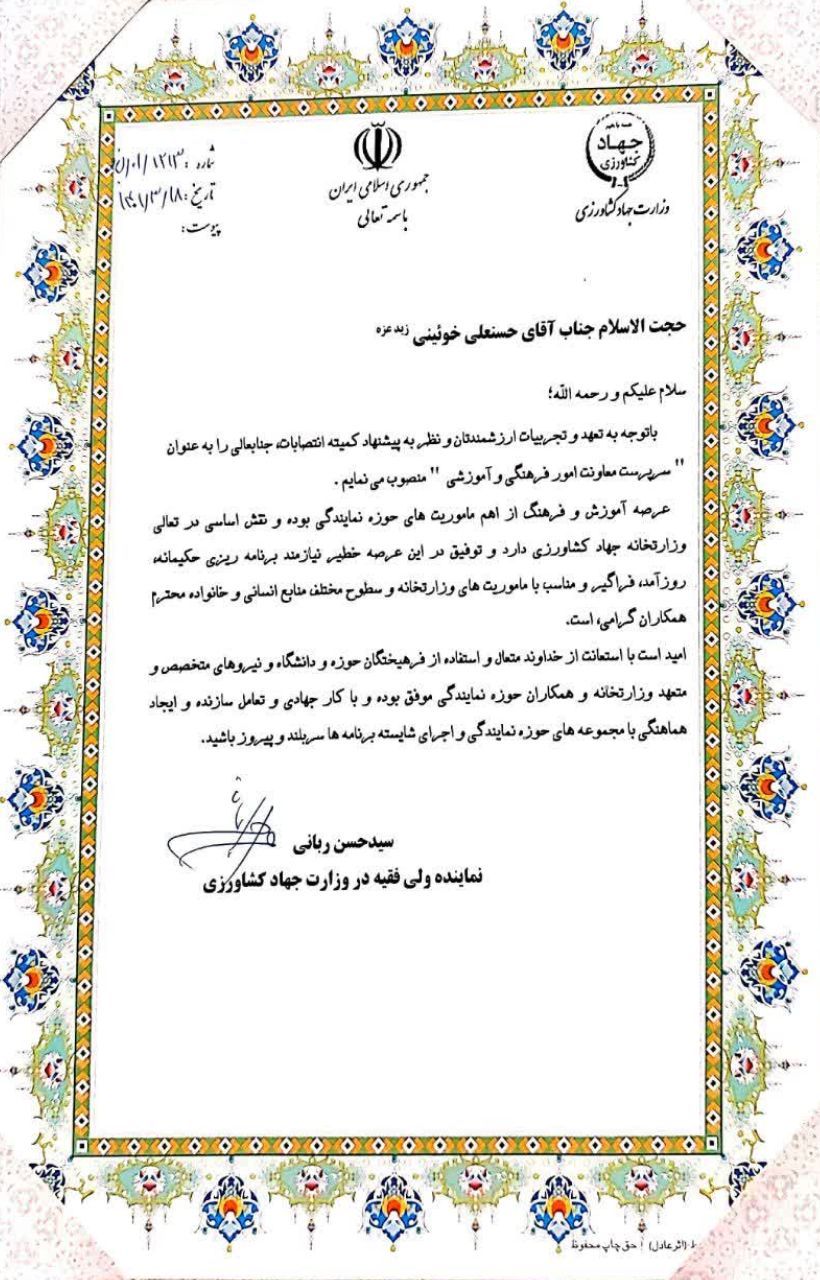 جهاد
کشاورزی
وزارت جهاد کشاورزی
جمهوری اسلامی ایران
باسمه تعالی
شماره :
تاریخ : ۱۴۰۱/۳/۱۸
پیوست:
حجت الاسلام جناب آقای حسنعلی خوئینی زید عزه
سلام علیکم و رحمه الله؛
باتوجه به تعهد و تجربیات ارزشمندتان و نظر به پیشنهاد کمیته انتصابات، جنابعالی را به عنوان
" سرپرست معاونت امور فرهنگی و آموزشی " منصوب می نمایم .
عرصه آموزش و فرهنگ از اهم ماموریت های حوزه نمایندگی بوده و نقش اساسی در تعالی
وزارتخانه جهاد کشاورزی دارد و توفیق در این عرصه خطیر نیازمند برنامه ریزی حکیمانه،
روزآمد، فراگیر و مناسب با ماموریت های وزارتخانه و سطوح مختلف منابع انسانی و خانواده محترم
همکاران گرامی، است.
امید است با استعانت از خداوند متعال و استفاده از فرهیختگان حوزه و دانشگاه و نیروهای متخصص و
متعهد وزارتخانه و همکاران حوزه نمایندگی موفق بوده و با کار جهادی و تعامل سازنده و ایجاد
هماهنگی با مجموعه های حوزه نمایندگی و اجرای شایسته برنامه ها سربلند و پیروز باشید.
سیدحسن ربانی
نماینده ولی فقیه در وزارت جهاد کشاورزی
(اثر عادل) حق چاپ محفوظ